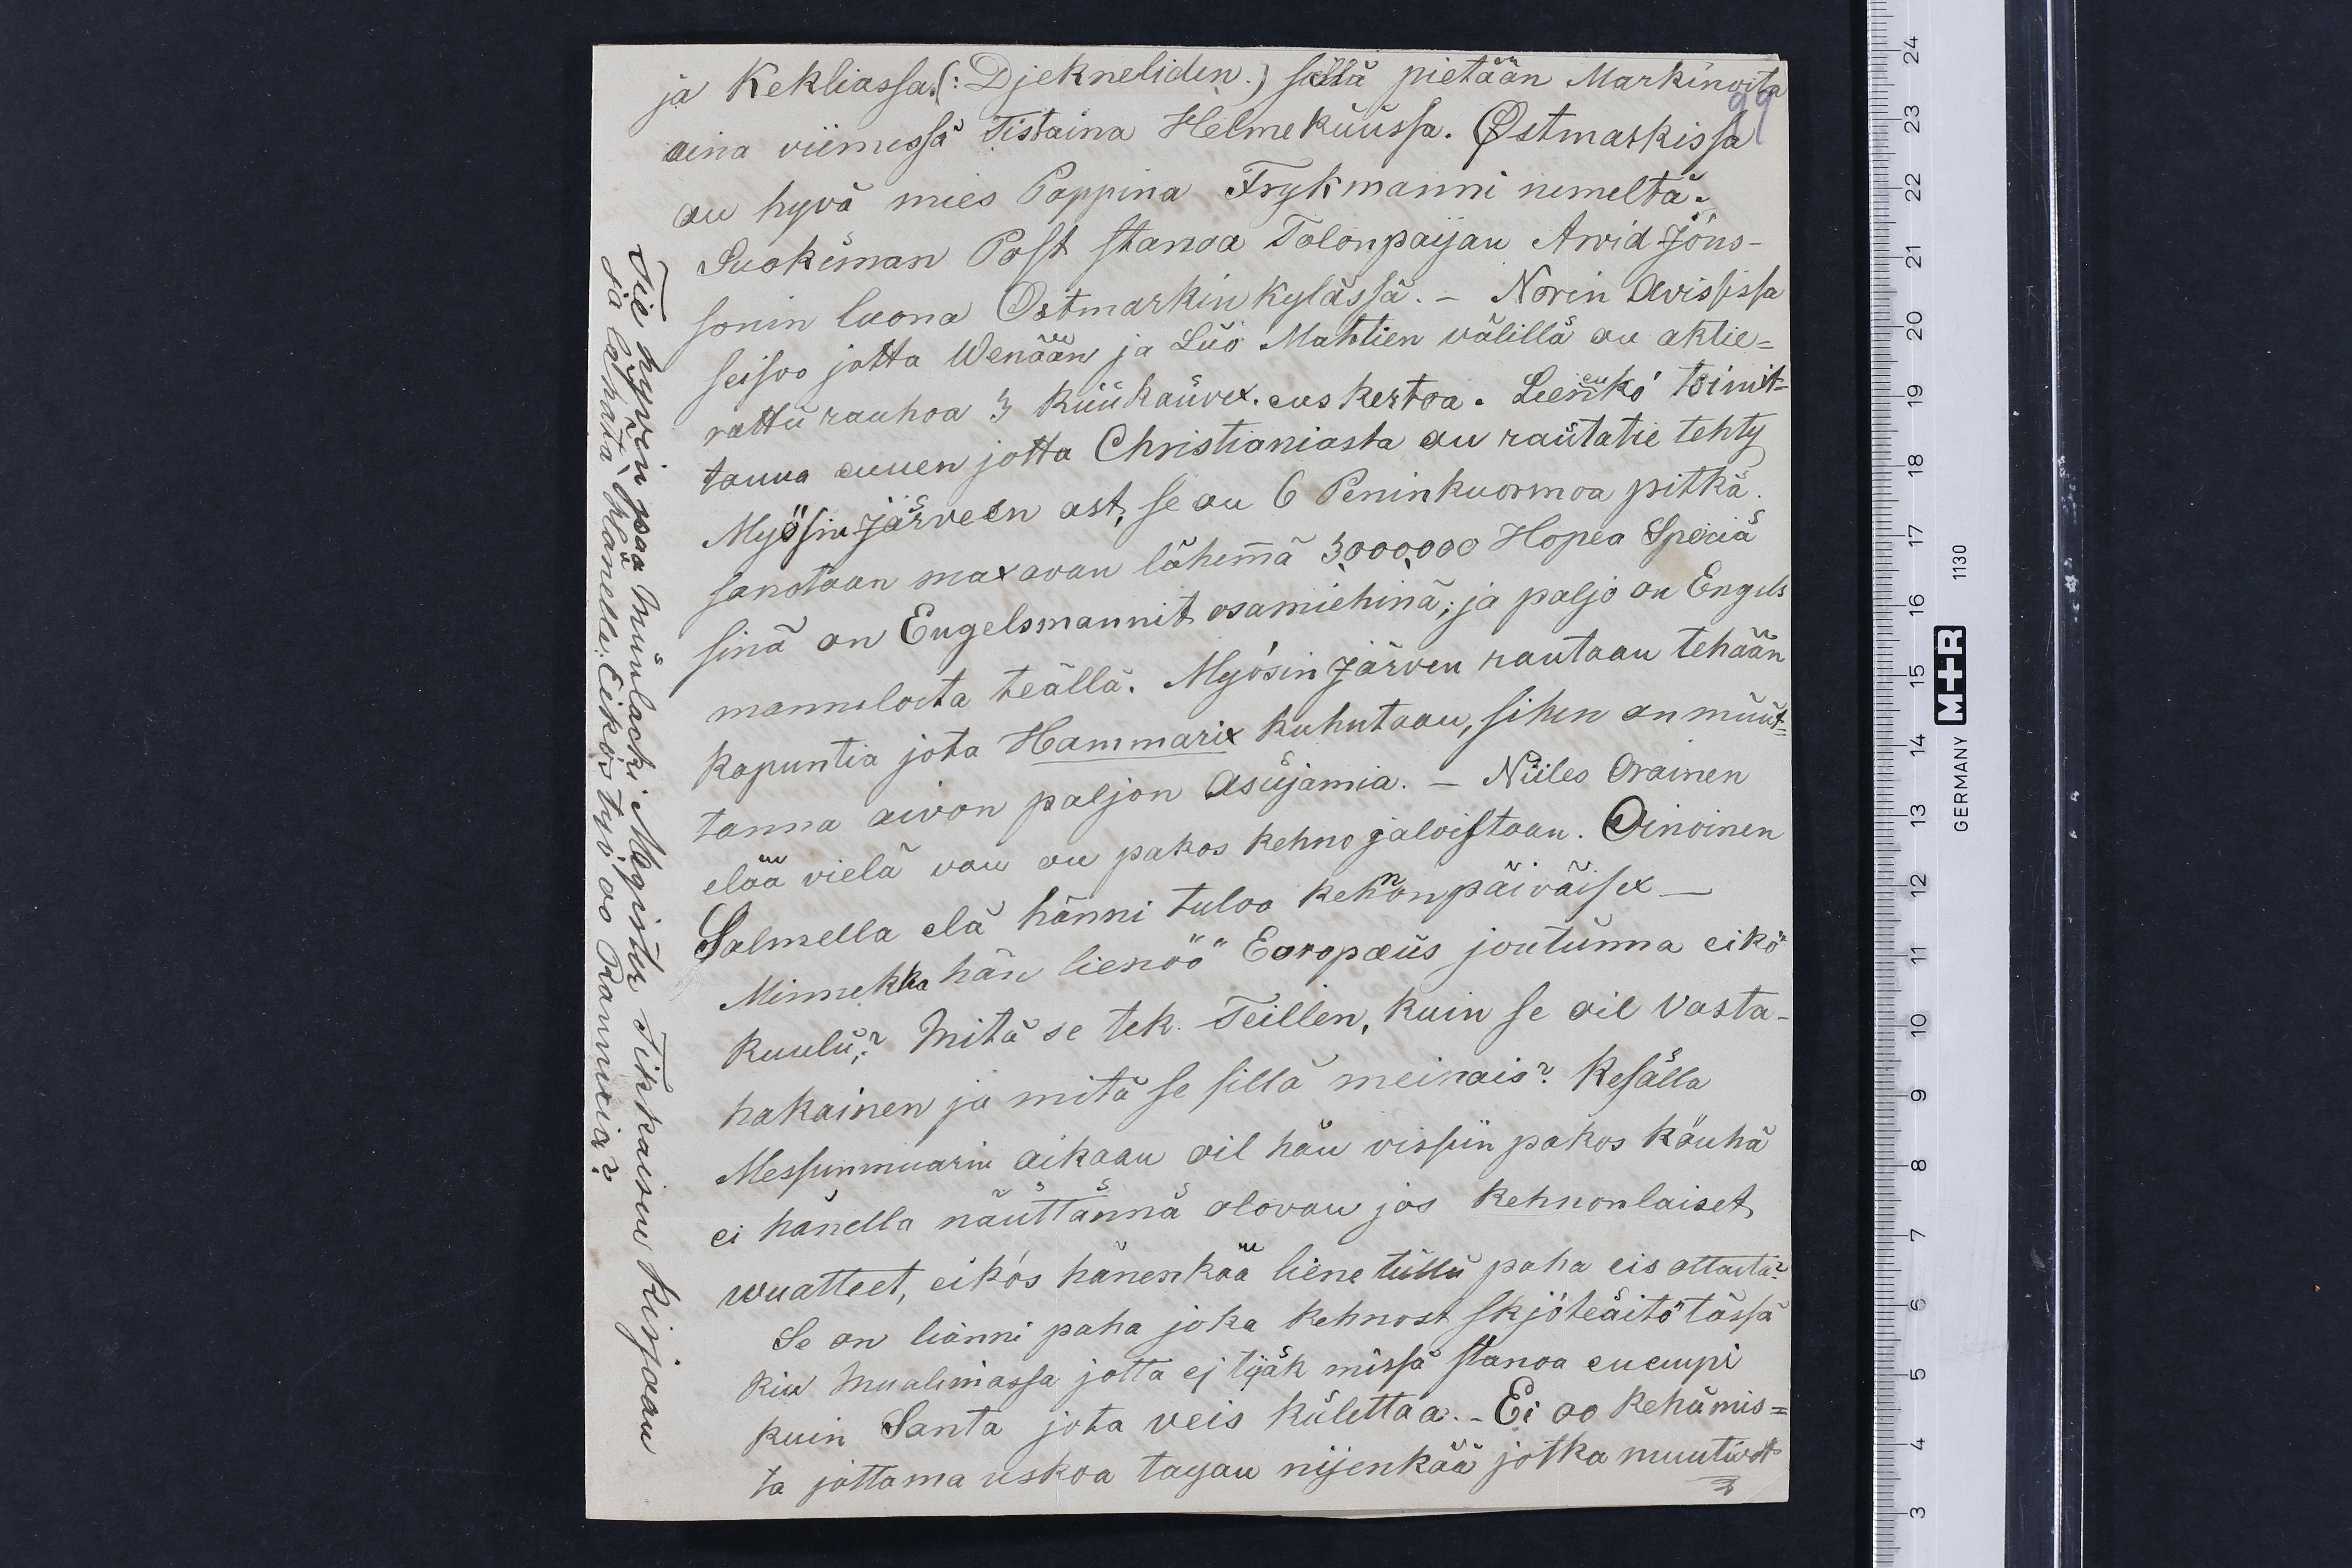 ja Kekliassa (: Djekneliden.) sillä pietään Markinoita
99
aina viimessä Tistaina Helmekuussa. Østmarkissa
au hyvä mies Pappina Frykmanni nimeltä.
Suokéman Post stanoa Tolonpaijau Arvid Jöns-
sonin luona Østmarkin kylässä. – Norin Avisissa
seisoo jotta Wenään ja Luo Mahtien välillä au aktie=
rattu rauhoa 3 kuukauvex. eus kertoa. Leenkö toimit=
tanna ennen jotta Christianiasta au rautatie tehty
Myösin järveen ast, se au 6 Peninkuormoa pitkä.
sanotaan maxavan lähemä 3,000,000 Hopea Speciä
sinä on Engelsmannit osamiehinä; ja paljo on Engels
manniloita teällä. Myösin Järven rantaan tehään
kapuntia jota Hammarix kuhutaan, sihen on muut=
tanna aivon paljon asujamia. – Niiles Orainen
elää vielä vau au pakos kehno jaloistaan. Oinoinen
Salmella elä hänni tuloo kehnonpäiväisex –
Minnekka hän lienöö Europæus joutunna eikö
kuulu? Mitä se tek. Teillen, kuin se oil Vasta-
hakainen ja mitä se sillä meinais? Kesälla
Messunmuarin aikaan oil hän vissiin pakos käuhä
ei hänella näuttännä olovau jos kehnonlaiset
wuatteet, eikös hänenkää liene tullu paha eis ottaita?
Se on liänni paha joka kehnost skjöteäitö tässä
kin Mualimassa jotta ej tijäk missä stanoa enempi
kuin Santa jota veis kulettaa. – Ei oo kehumis=
ta jottama uskoa tagau nijenkää jotka muutivot
Tie hyvin saa Müulacki Magister Tikkaisen kirjaau
ja lainata Manelle. Eikös työ oo Raumaia?